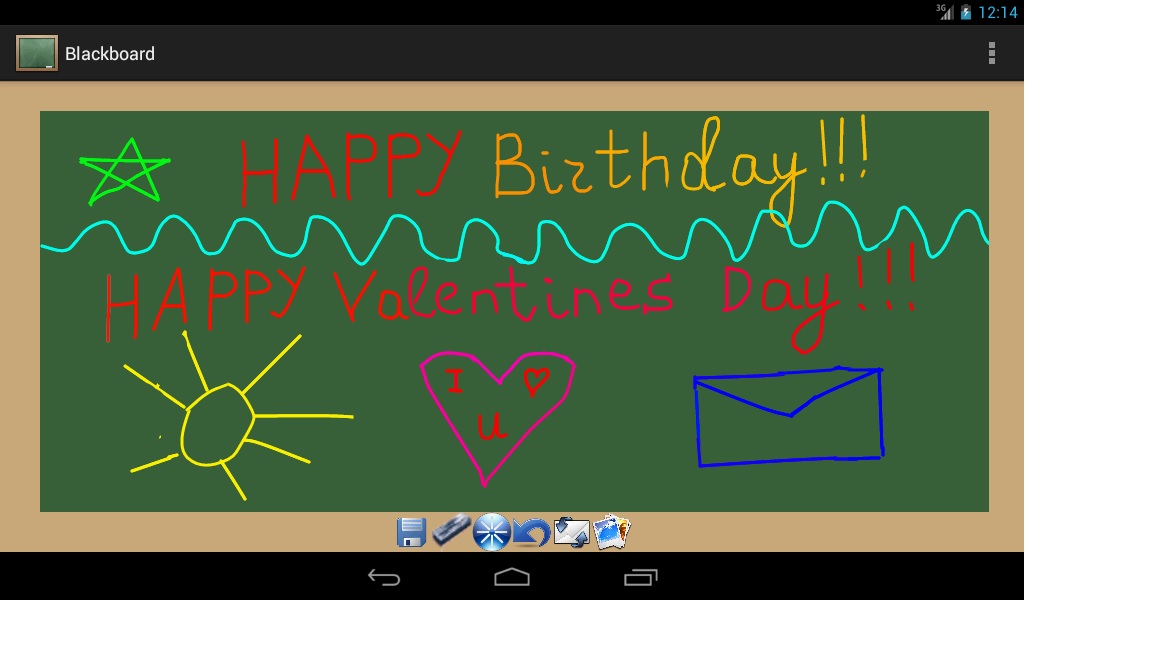 3G 12:14
Blackboard
HAPPY Birthday!!!
HAPPY Valentines Day!!!
I ♡
u